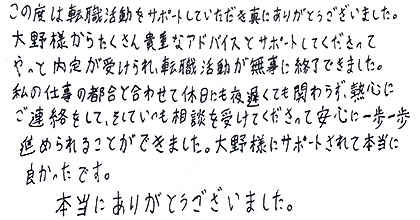 この度は転職活動をサポートしていただき真にありがとうございました。
大野様からたくさん貴重なアドバイスとサポートしてくださって
やっと内定が受けられ、転職活動が無事に終了できました。
私の仕事の都合と合わせて休日にも夜遅くても関わらず、熱心に
ご連絡をして、そしていつも相談を受けてくださって安心に一歩一歩
進められることができました。大野様にサポートされて本当に
良かったです。
本当にありがとうございました。